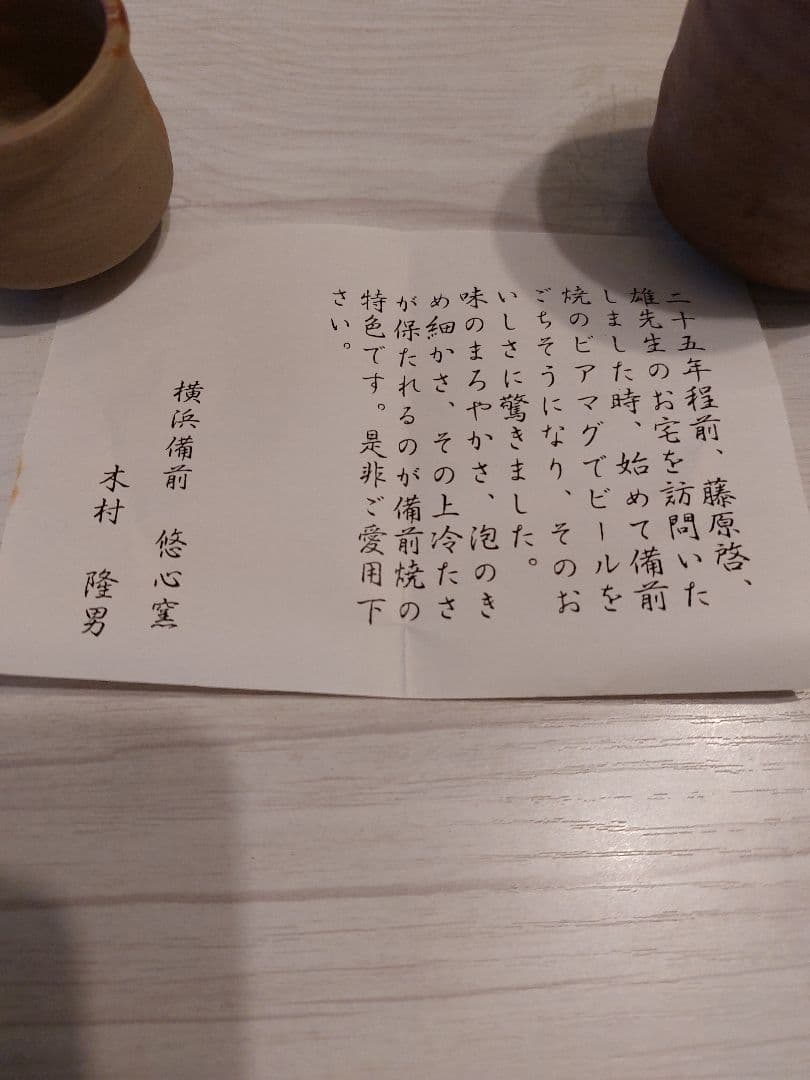 二十五年程前、藤原啓、
雄先生のお宅を訪問いた
しました時、始めて備前
焼のビアマグでビールを
ごちそうになり、そのお
いしさに驚きました。
味のまろやかさ、泡のき
め細かさ、その上冷たさ
が保たれるのが備前焼の
特色です。是非ご愛用下
さい。
横浜備前 悠心窯
木村 隆男